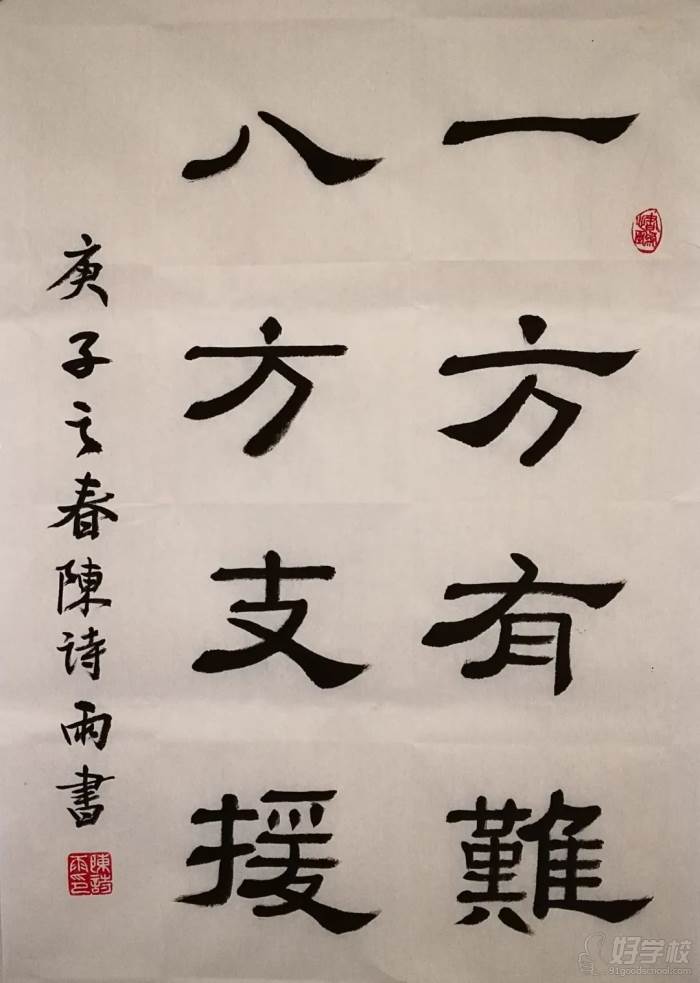 一方有難
八方支援
庚子之春陳诗雨書
陳詩雨印
好学校
91goodschool.com